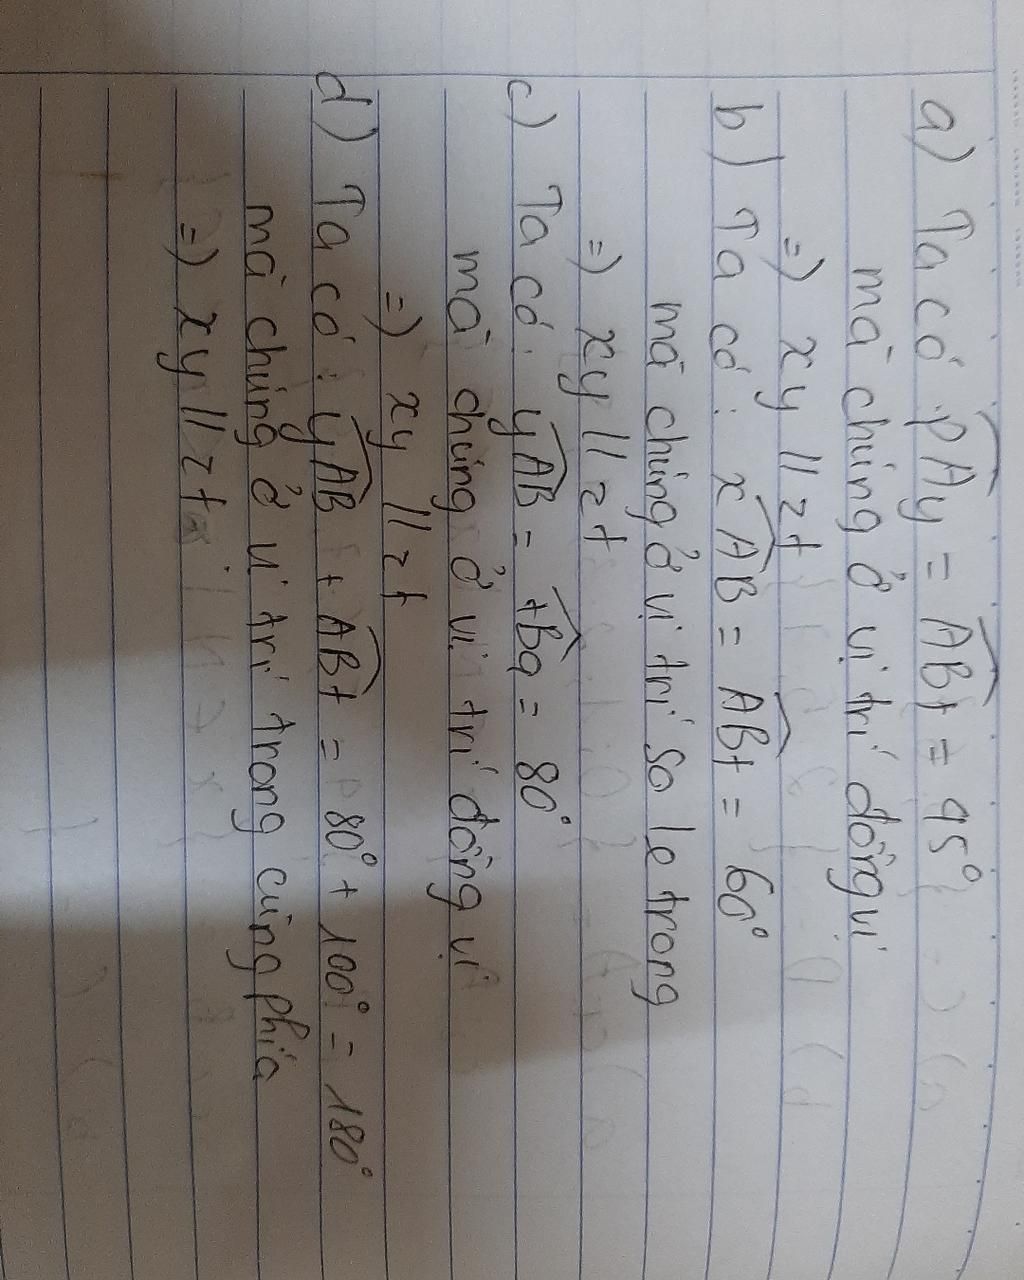 a) Ta có pAy = ABt = 95°
mà chúng ở vị trí đồng vị
=) xy // zt
b) Ta có: xAB = ABt = 60°
mà chúng ở vị trí so le trong
=) xy // zt
c) Ta có: yAB = tBq = 80°
mà chúng ở vị trí đồng vị
=) xy // zt
d) Ta có: yAB + ABt = 80° + 100° = 180°
mà chúng ở vị trí trong cùng phía
=) xy // zt